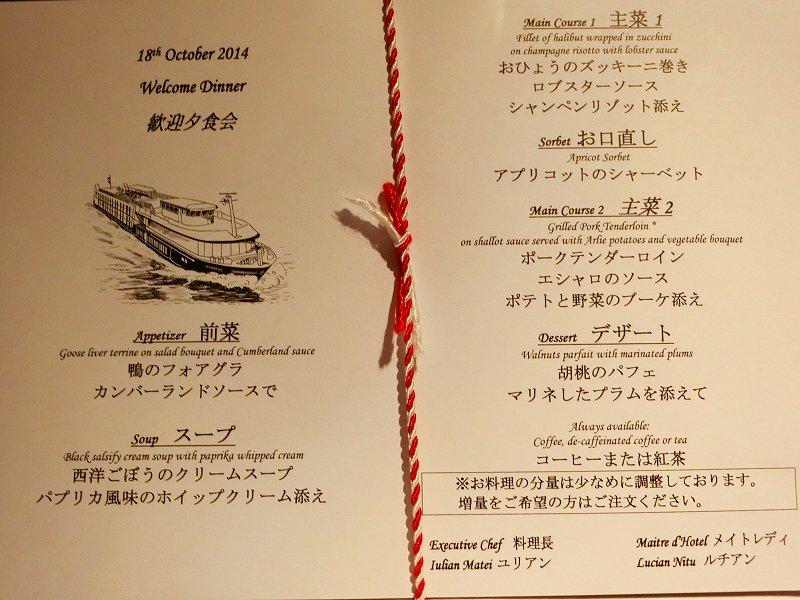 18th October 2014
Welcome Dinner
歓迎夕食会
Appetizer 前菜
Goose liver terrine on salad bouquet and Cumberland sauce
鴨のフォアグラ
カンバーランドソースで
Soup スープ
Black salsify cream soup with paprika whipped cream
西洋ごぼうのクリームスープ
パプリカ風味のホイップクリーム添え
Main Course 1 主菜 1
Fillet of halibut wrapped in zucchini
on champagne risotto with lobster sauce
おひょうのズッキーニ巻き
ロブスターソース
シャンペンリゾット添え
Sorbet お口直し
Apricot Sorbet
アプリコットのシャーベット
Main Course 2 主菜 2
Grilled Pork Tenderloin *
on shallot sauce served with Arlie potatoes and vegetable bouquet
ポークテンダーロイン
エシャロのソース
ポテトと野菜のブーケ添え
Dessert デザート
Walnuts parfait with marinated plums
胡桃のパフェ
マリネしたプラムを添えて
Always available:
Coffee, de-caffeinated coffee or tea
コーヒーまたは紅茶
※お料理の分量は少なめに調整しております。
増量をご希望の方はご注文ください。
Executive Chef 料理長
Iulian Matei ユリアン
Maitre d'Hotel メイトレディ
Lucian Nitu ルチアン